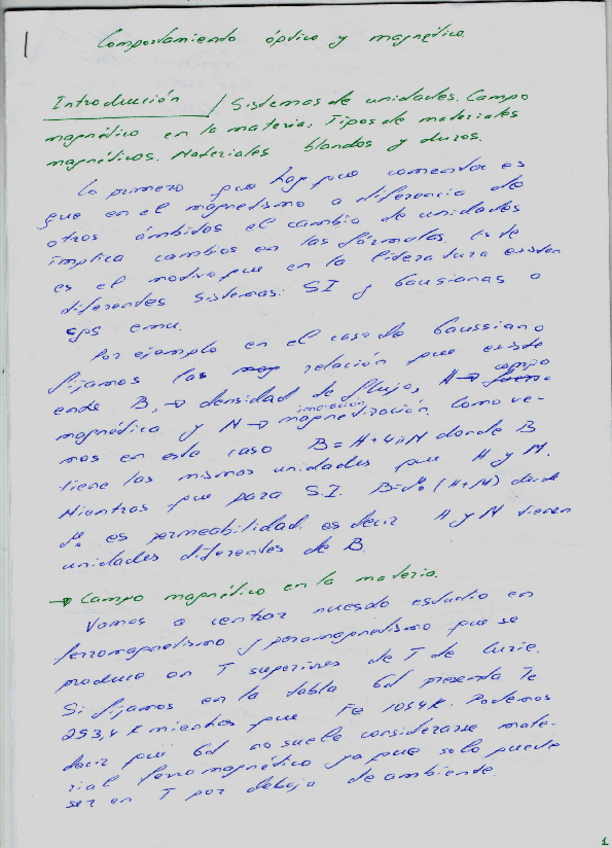 Comportamiento óptico y magnético.
Introducción / Sistemas de unidades. Campo
magnético en la materia. Tipos de materiales
magnéticos. Materiales blandos y duros.
Lo primero que hay que comentar es
que en el magnetismo a diferencia de
otros ámbitos el cambio de unidades
implica cambios en las fórmulas. Este
es el motivo que en la literatura existen
diferentes sistemas: SI y Gausianas o
cgs emu.
Por ejemplo en el caso de Gaussiano
fijamos las relación que existe
entre B, → densidad de flujo, H → campo
magnético y M → imanación magnetización. Como ve-
mos en este caso B = H + 4πM donde B
tiene las mismas unidades que H y M.
Mientras que para S.I. B = μ₀ (H + M) donde
μ₀ es permeabilidad. es decir H y M tienen
unidades diferentes de B.
→ Campo magnético en la materia.
Vamos a centrar nuestro estudio en
ferromagnetismo y paramagnetismo que se
produce en T superiores de T de Curie.
Si fijamos en la tabla Gd presenta Tc
293,4 K mientras que Fe 1054 K. Podemos
decir que Gd no suele considerarse mate-
rial ferromagnético ya que solo puede
ser en T por debajo de ambiente.
1